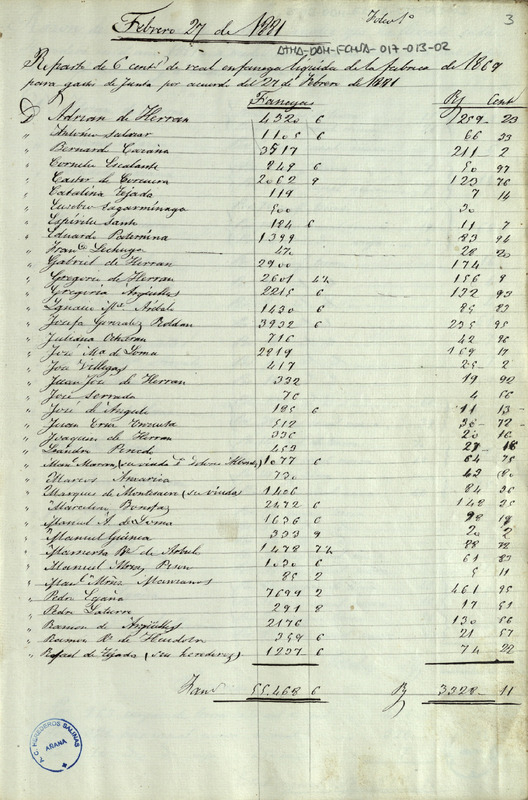 3
Febrero 27 de 1881
Folio 1º
ATHA-DAH-FCHSA-017-013-02
Reparto de 6 centˢ de real en fanega líquida de la fabrica de 1869
para gastos de Junta por acuerdo del 27 de Febrero de 1881
Fanegas Rˢ Centˢ
Dⁿ Adrian de Herran 4320 6 259 23
" Antonio Salazar 1105 6 66 33
" Bernardo Cazaña 3517 211 2
" Cornelio Escalante 849 6 50 97
" Castor de 2062 9 123 76
" Catalina Tejada 119 7 14
" Eusebio Sagarminaga 500 30
" Espíritu Santo 184 6 11 7
" Eduardo Paternina 1399 83 94
" Franᶜᵒ Lechuga 470 28 20
" Gabriel de Herran 2900 174
" Gregorio de Herran 2601 4½ 156 8
" Gregoria Angulo 2215 6 132 93
" Ignacio Mª Aribali 1430 6 85 83
" Josefa Gonzalez Roldan 3932 6 235 95
" Juliana Ochoran 716 42 96
" José Mª de Loma 2819 169 17
" José Villegas 417 25 2
" Juan José de Herran 332 19 92
" José Serrada 76 4 56
" José de Angulo 185 6 11 13
" Juan Cruz 512 30 72
" Joaquin de Herran 336 20 16
" Leandro Pinedo 453 27 18
(su viuda Dª Dolores 1077 6 64 75
" Marcos Amarica 730 43 80
" Marques de Montesacro (su viuda) 1406 84 36
" Marcelino Bonifaz 2472 6 148 35
" Manuel A. de Loma 1636 6 98 19
" Manuel Guinea 333 9 20 2
" 1478 7½ 88 72
" Manuel 1030 6 61 83
" Manˡ Manzanos 85 2 5 11
" Pedro Egaña 7699 2 461 95
" Pedro Laturre 291 8 17 51
" Ramon de 2176 130 56
" Ramon 359 6 21 57
" Rafael de Tejada (sus herederos) 1237 6 74 22
Fanˢ 55.468 6 Rˢ 3328 11
A.C. HEREDEROS SALINAS
AÑANA